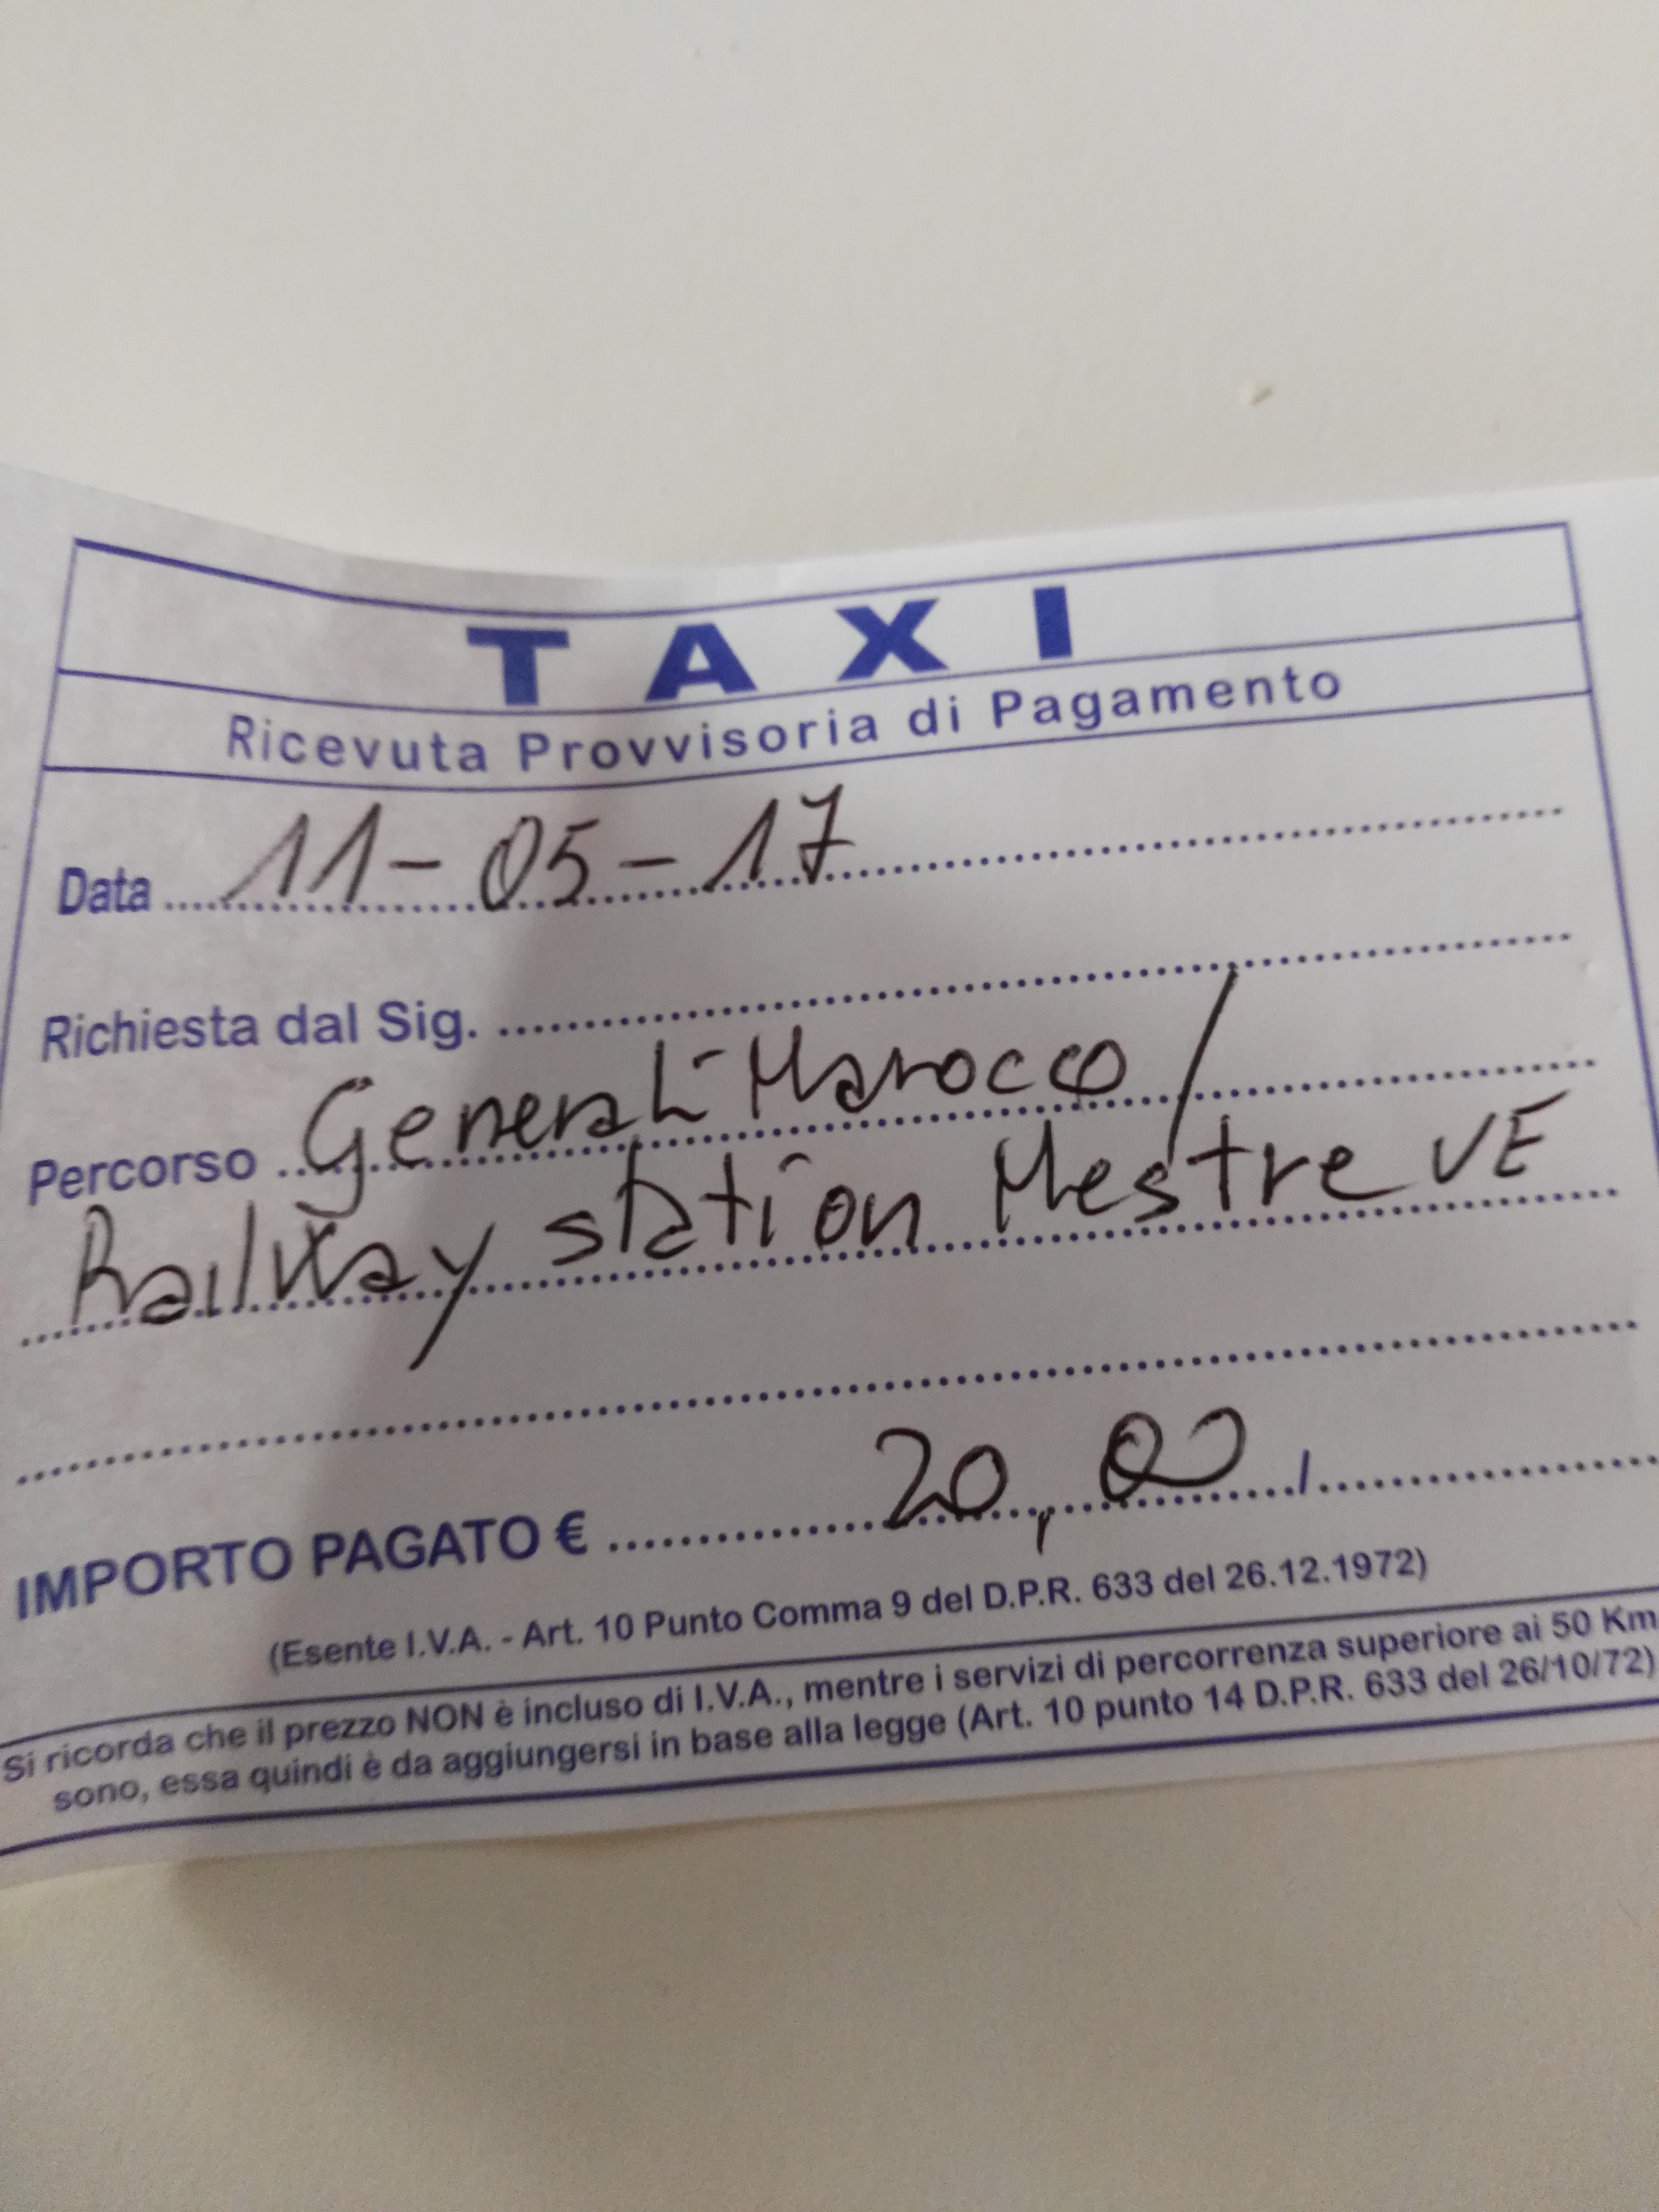 TAXI
Ricevuta Provvisoria di Pagamento
Data 11-05-17
Richiesta dal Sig.
Percorso Generali-Marocco /
Railway station Mestre VE
IMPORTO PAGATO € 20,00
(Esente I.V.A. - Art. 10 Punto Comma 9 del D.P.R. 633 del 26.12.1972)
Si ricorda che il prezzo NON è incluso di I.V.A., mentre i servizi di percorrenza superiore ai 50 Km
sono, essa quindi è da aggiungersi in base alla legge (Art. 10 punto 14 D.P.R. 633 del 26/10/72)